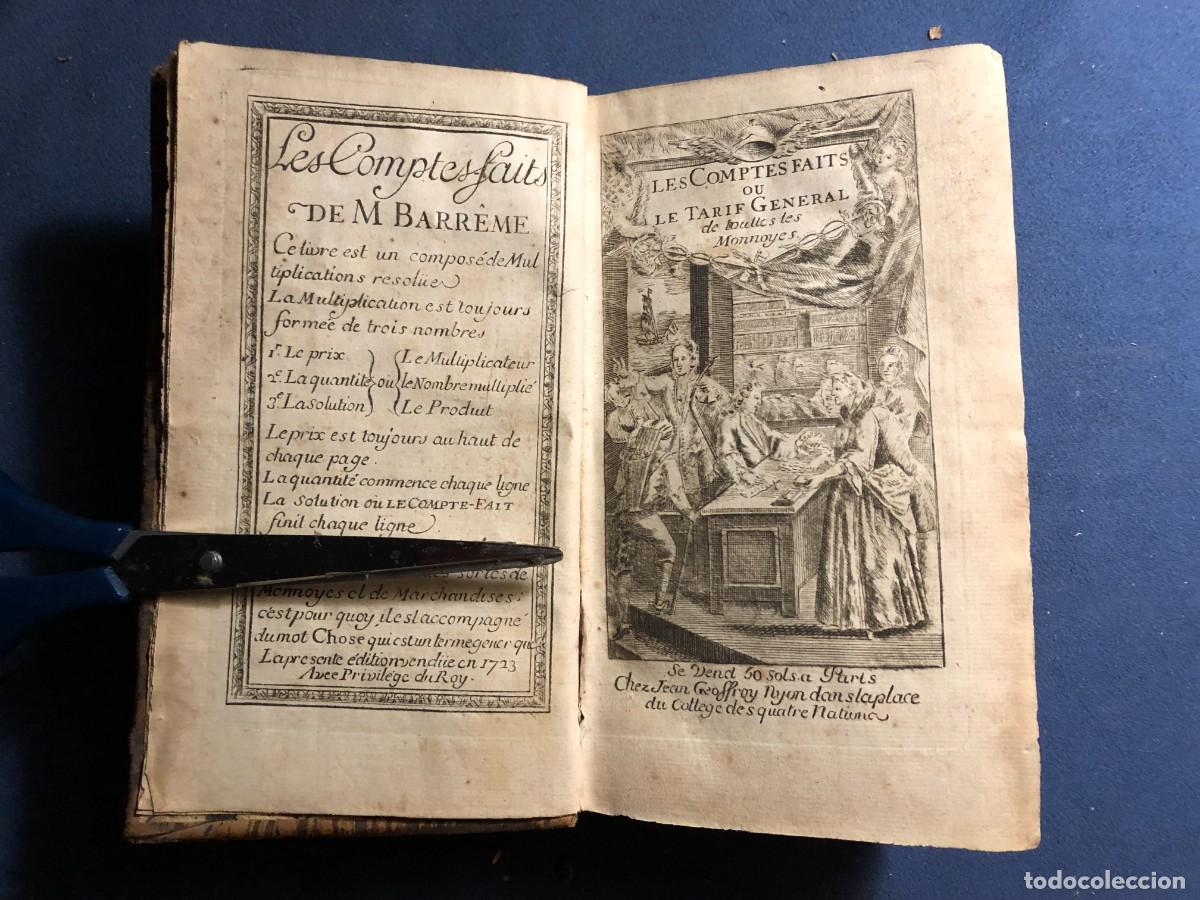 Les Comptes faits
DE M BARRÊME
Ce livre est un composé de Mul
tiplications resolües
La Multiplication est toujours
formée de trois nombres
1r. Le prix
2e. La quantité
3e. La Solution
ou
Le Multiplicateur
le Nombre multiplié
Le Produit
Le prix est toujours au haut de
chaque page.
La quantité commence chaque ligne
La Solution ou LE COMPTE-FAIT
finit chaque ligne
sortes de
Monnoyes et de Marchandises:
c'est pour quoy, il est accompagné
du mot Chose qui est un terme gener que
La presente édition vendüe en 1723
Avec Privilége du Roy.
LES COMPTES FAITS
OU
LE TARIF GENERAL
de touttes les
Monnoyes.
Se Vend 50 Sols a Paris
Chez Jean Geoffroy Nyon dans la place
du College des quatre Nations
todocoleccion